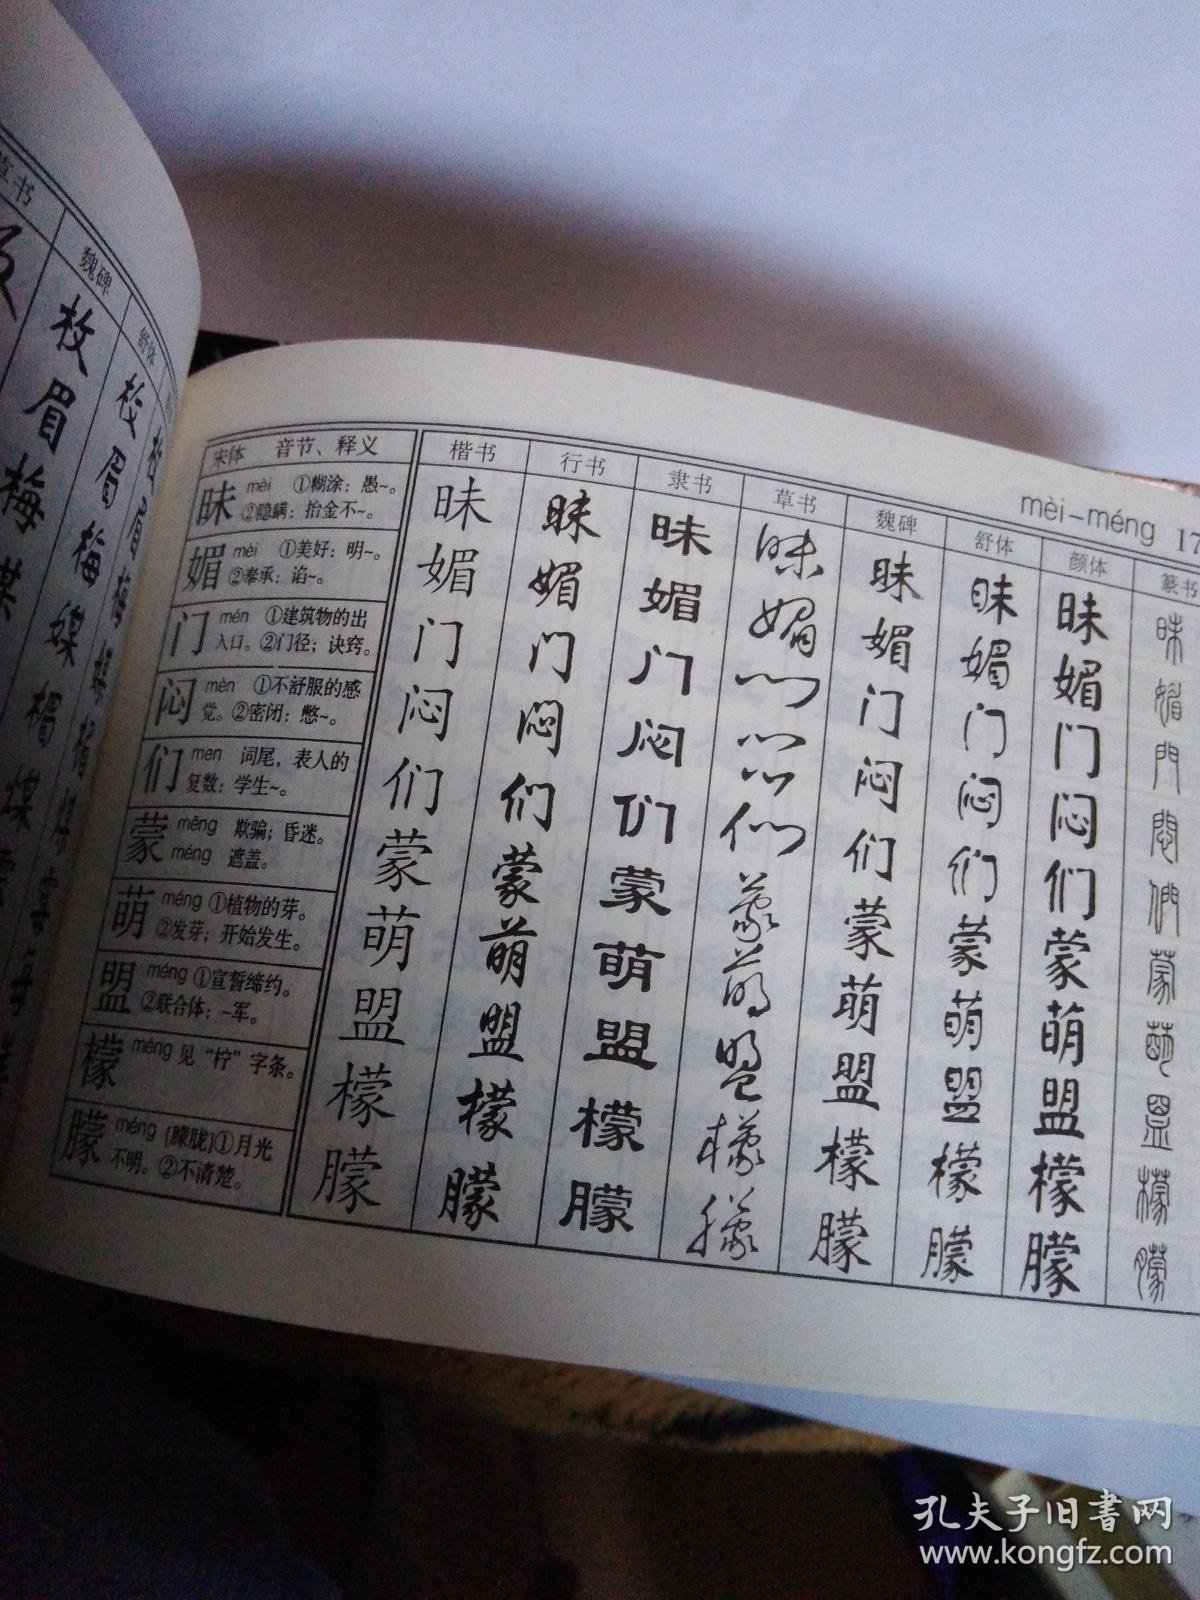 草书
魏碑
舒体
枚 枚
眉 眉 眉
梅 梅 梅
媒 媒 媒
楣 楣
煤 煤
mèi-méng 17
宋体 音节、释义 楷书 行书 隶书 草书 魏碑 舒体 颜体 篆书
昧 mèi ①糊涂：愚~。
②隐瞒：拾金不~。
昧 昧 昧 昧 昧 昧 昧 昧
媚 mèi ①美好：明~。
②奉承：谄~。
媚 媚 媚 媚 媚 媚 媚 媚
门 mén ①建筑物的出
入口。②门径；诀窍。
门 门 门 门 门 门 门 門
闷 mèn ①不舒服的感
觉。②密闭：憋~。
闷 闷 闷 闷 闷 闷 闷 悶
们 men 词尾，表人的
复数：学生~。
们 们 们 们 们 们 们 們
蒙 mēng 欺骗；昏迷。
méng 遮盖。
蒙 蒙 蒙 蒙 蒙 蒙 蒙 蒙
萌 méng ①植物的芽。
②发芽；开始发生。
萌 萌 萌 萌 萌 萌 萌 萌
盟 méng ①宣誓缔约。
②联合体：~军。
盟 盟 盟 盟 盟 盟 盟 盟
檬 méng 见“柠”字条。
檬 檬 檬 檬 檬 檬 檬 檬
朦 méng [朦胧]①月光
不明。②不清楚。
朦 朦 朦 朦 朦 朦 朦 朦
孔夫子旧书网
www.kongfz.com